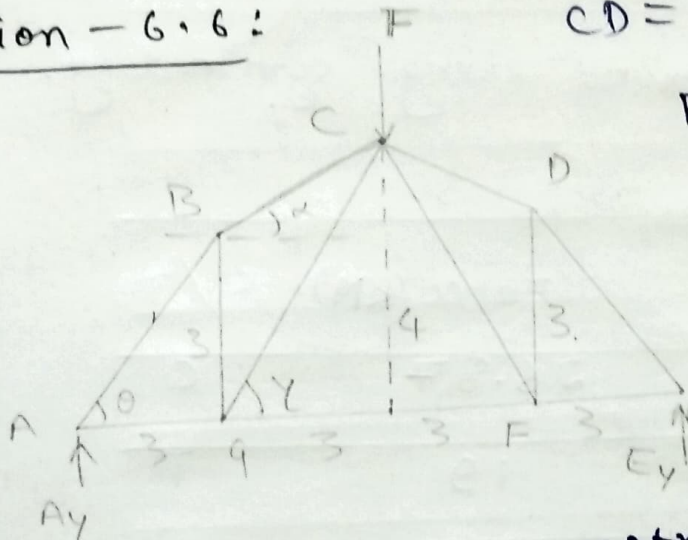 ion - 6.6:
CD =
F
C
D
B
α
3
4
3.
A
θ
γ
3
G
3
3
F
3
Ay
Ey